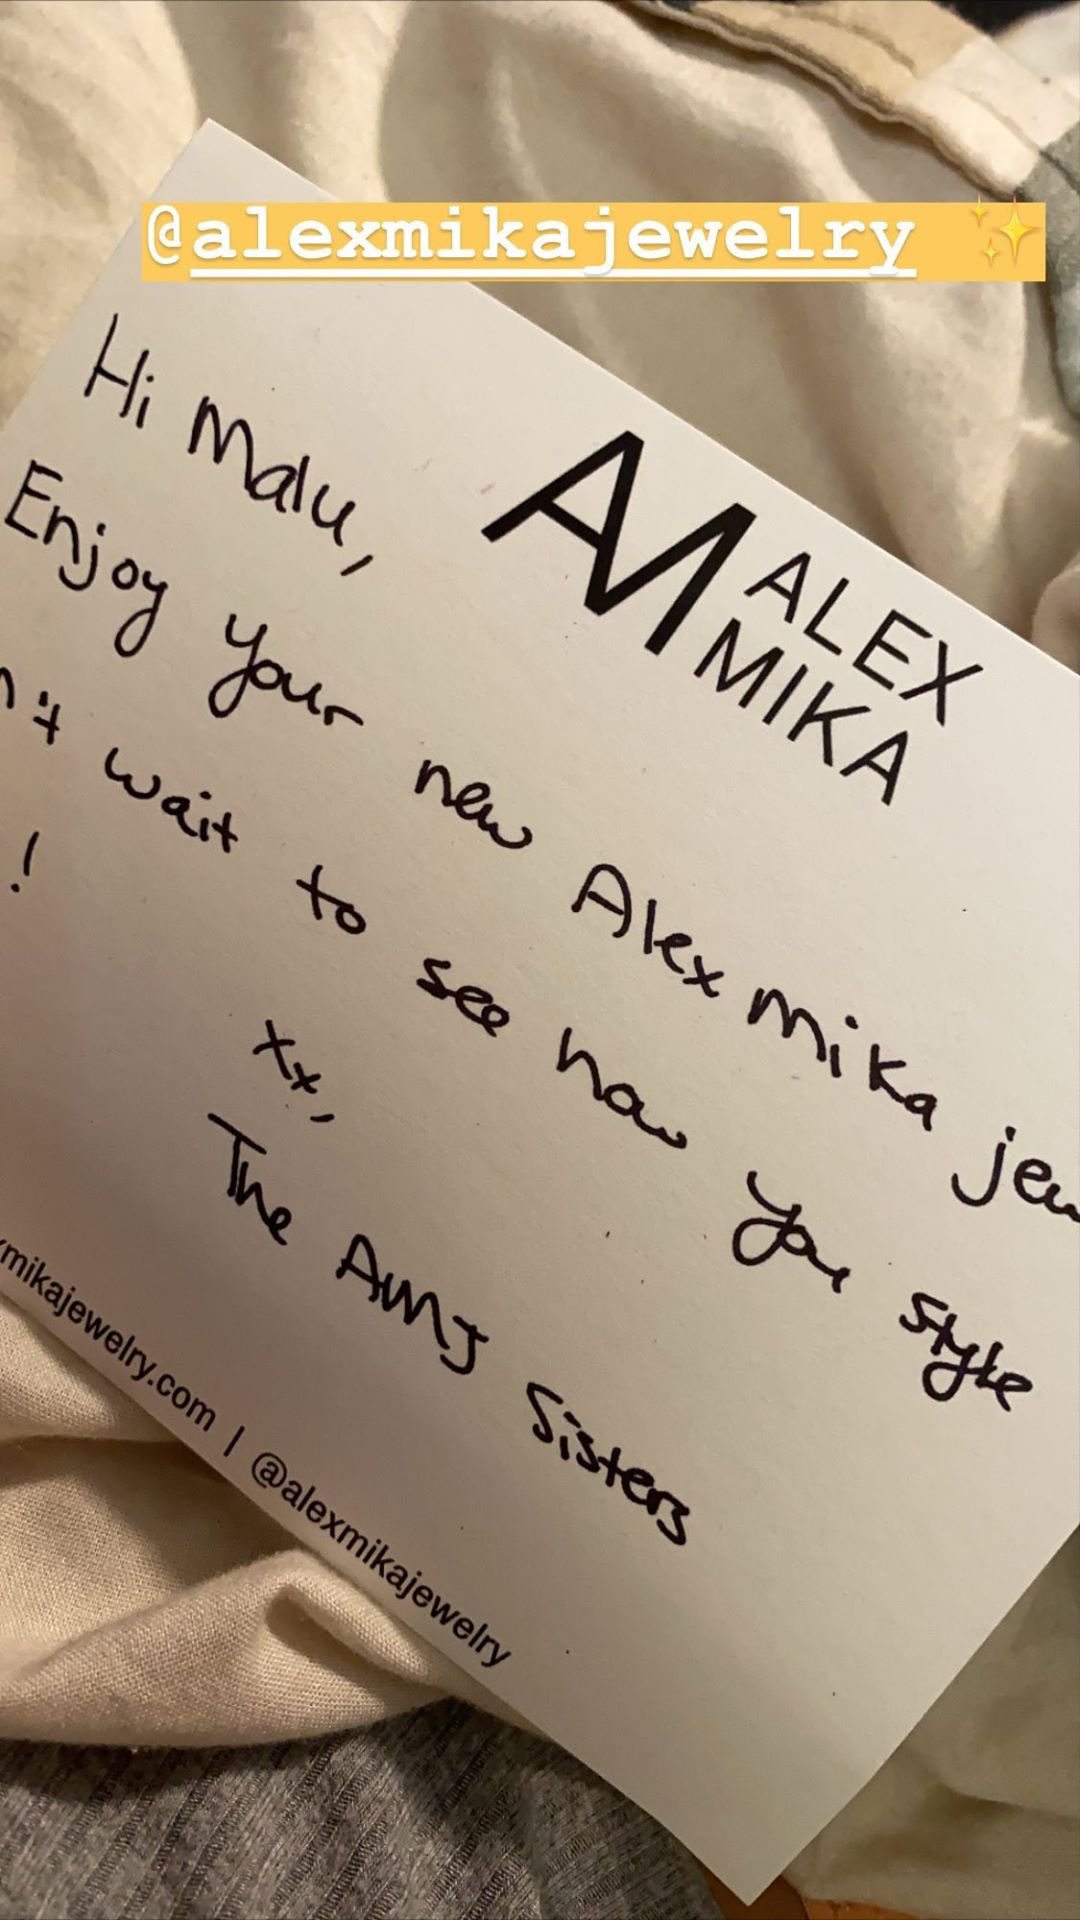 @alexmikajewelry ✨
Hi Malu,
AM ALEX
MIKA
Enjoy your new Alex Mika jew
n't wait to see how you style
!
xx,
The AMJ Sisters
xmikajewelry.com | @alexmikajewelry